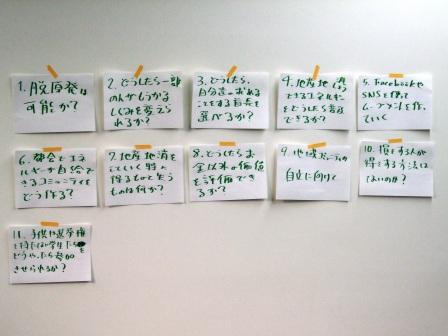 1. 脱原発は
可能か?
2. どうしたら一部
の人がもうかる
しくみを変えら
れるか?
3. どうしたら、
自分達の求める
ことをする首長を
選べるか?
4. 地産地消
できるエネルギー
をどうしたら
できるか?
5. Facebookや
SNSを使って
ムーブメントを作っ
ていく
6. 都会でエネ
ルギーが自給で
きるコミュニティを
どう作る?
7. 地産地消を
していく時
得るものと失う
ものは何か?
8. どうしたらお
金以外の価値
を評価でき
るか?
9. 地域
自立に向けて
10. 損する人が
得をする方法は
ないのか?
11. 子供や選挙権
を持たない学生たちを
どうやったら参加
させられるか?